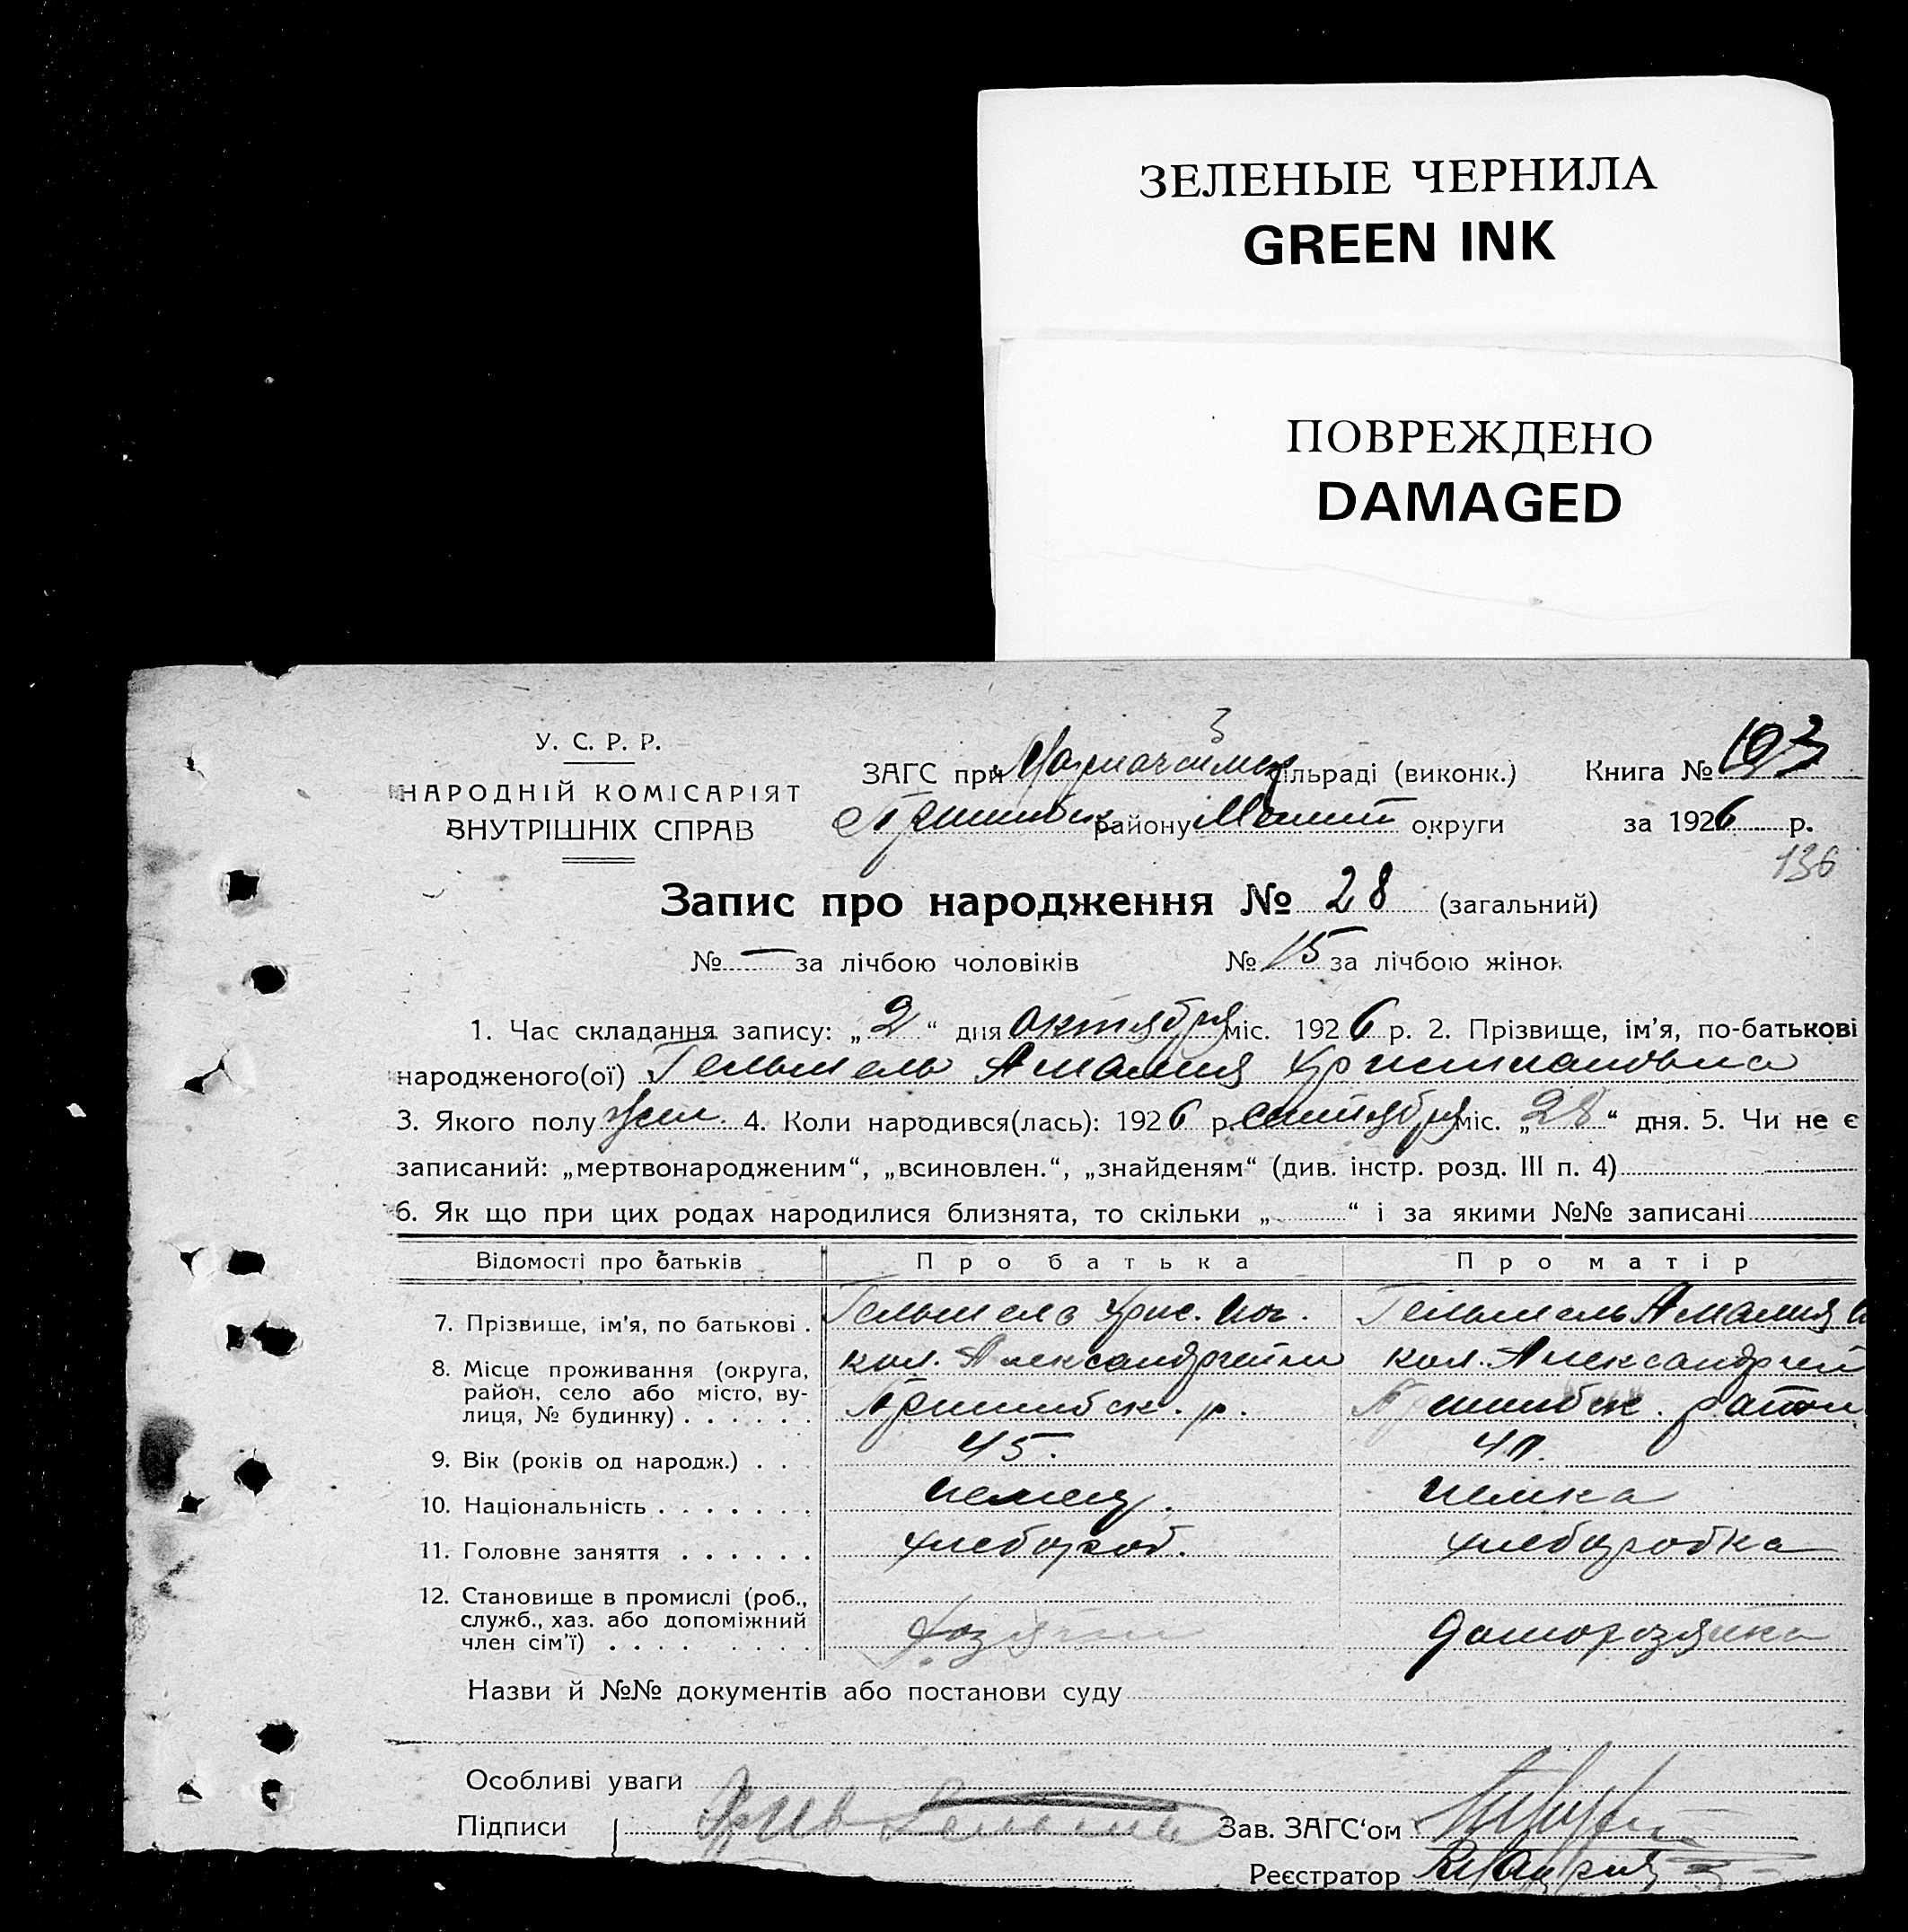 ЗЕЛЕНЫЕ ЧЕРНИЛА
GREEN INK
ПОВРЕЖДЕНО
DAMAGED
У. С. Р. Р.
НАРОДНІЙ КОМІСАРІЯТ
ВНУТРІШНІХ СПРАВ
ЗАГС при сільраді (виконк.) Книга № 193
Пришибск району Мелит округи за 1926 р.
136
Запис про народження № 28 (загальний)
№ — за лічбою чоловіків № 15 за лічбою жінок
1. Час складання запису: „2“ дня октября міс. 1926 р. 2. Прізвище, ім'я, по-батькові
народженого(ої) Гельмель Амалия Христиановна
3. Якого полу жен. 4. Коли народився(лась): 1926 р. сентября міс. „28“ дня. 5. Чи не є
записаний: „мертвонародженим“, „всиновлен.“, „знайденям“ (див. інстр. розд. III п. 4)
6. Як що при цих родах народилися близнята, то скільки „ “ і за якими №№ записані
Відомості про батьків Про батька Про матір
7. Прізвище, ім'я, по батькові . Гельмель Хрис. Гельмель Амалия
8. Місце проживання (округа, район, село або місто, вулиця, № будинку) . . . . . .
кол. Александргейм кол. Александргей
Пришибск. р. Пришибск. район
9. Вік (років од народж.) . . . 45. 41.
10. Національність . . . . . . . немец. немка
11. Головне заняття . . . . . . хлебороб. хлеборобка
12. Становище в промислі (роб., служб., хаз. або допоміжний член сім'ї) . . . . . . . . хозяин домохозяйка
Назви й №№ документів або постанови суду
Особливі уваги
Підписи Зав. ЗАГС'ом
Реєстратор